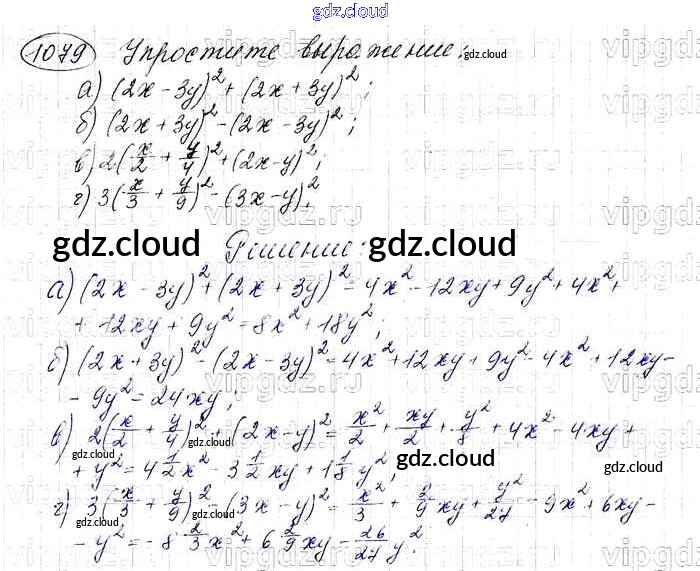 gdz.cloud
1079 Упростите выражение: gdz.cloud
а) (2x - 3y)² + (2x + 3y)²;
б) (2x + 3y)² - (2x - 3y)²;
в) 2(x/2 + y/4)² + (2x - y)²;
г) 3(x/3 + y/9)² - (3x - y)².
gdz.cloud Решение: gdz.cloud
а) (2x - 3y)² + (2x + 3y)² = 4x² - 12xy + 9y² + 4x² +
+ 12xy + 9y² = 8x² + 18y²;
б) (2x + 3y)² - (2x - 3y)² = 4x² + 12xy + 9y² - 4x² + 12xy -
- 9y² = 24xy;
в) 2(x/2 + y/4)² + (2x - y)² = x²/2 + xy/2 + y²/8 + 4x² - 4xy +
gdz.cloud gdz.cloud gdz.cloud
+ y² = 4 1/2 x² - 3 1/2 xy + 1 1/8 y²;
г) 3(x/3 + y/9)² - (3x - y)² = x²/3 + 2/9 xy + y²/27 - 9x² + 6xy -
gdz.cloud gdz.cloud
- y² = - 8 2/3 x² + 6 2/9 xy - 26/27 y².
gdz.cloud
vipgdz.ru